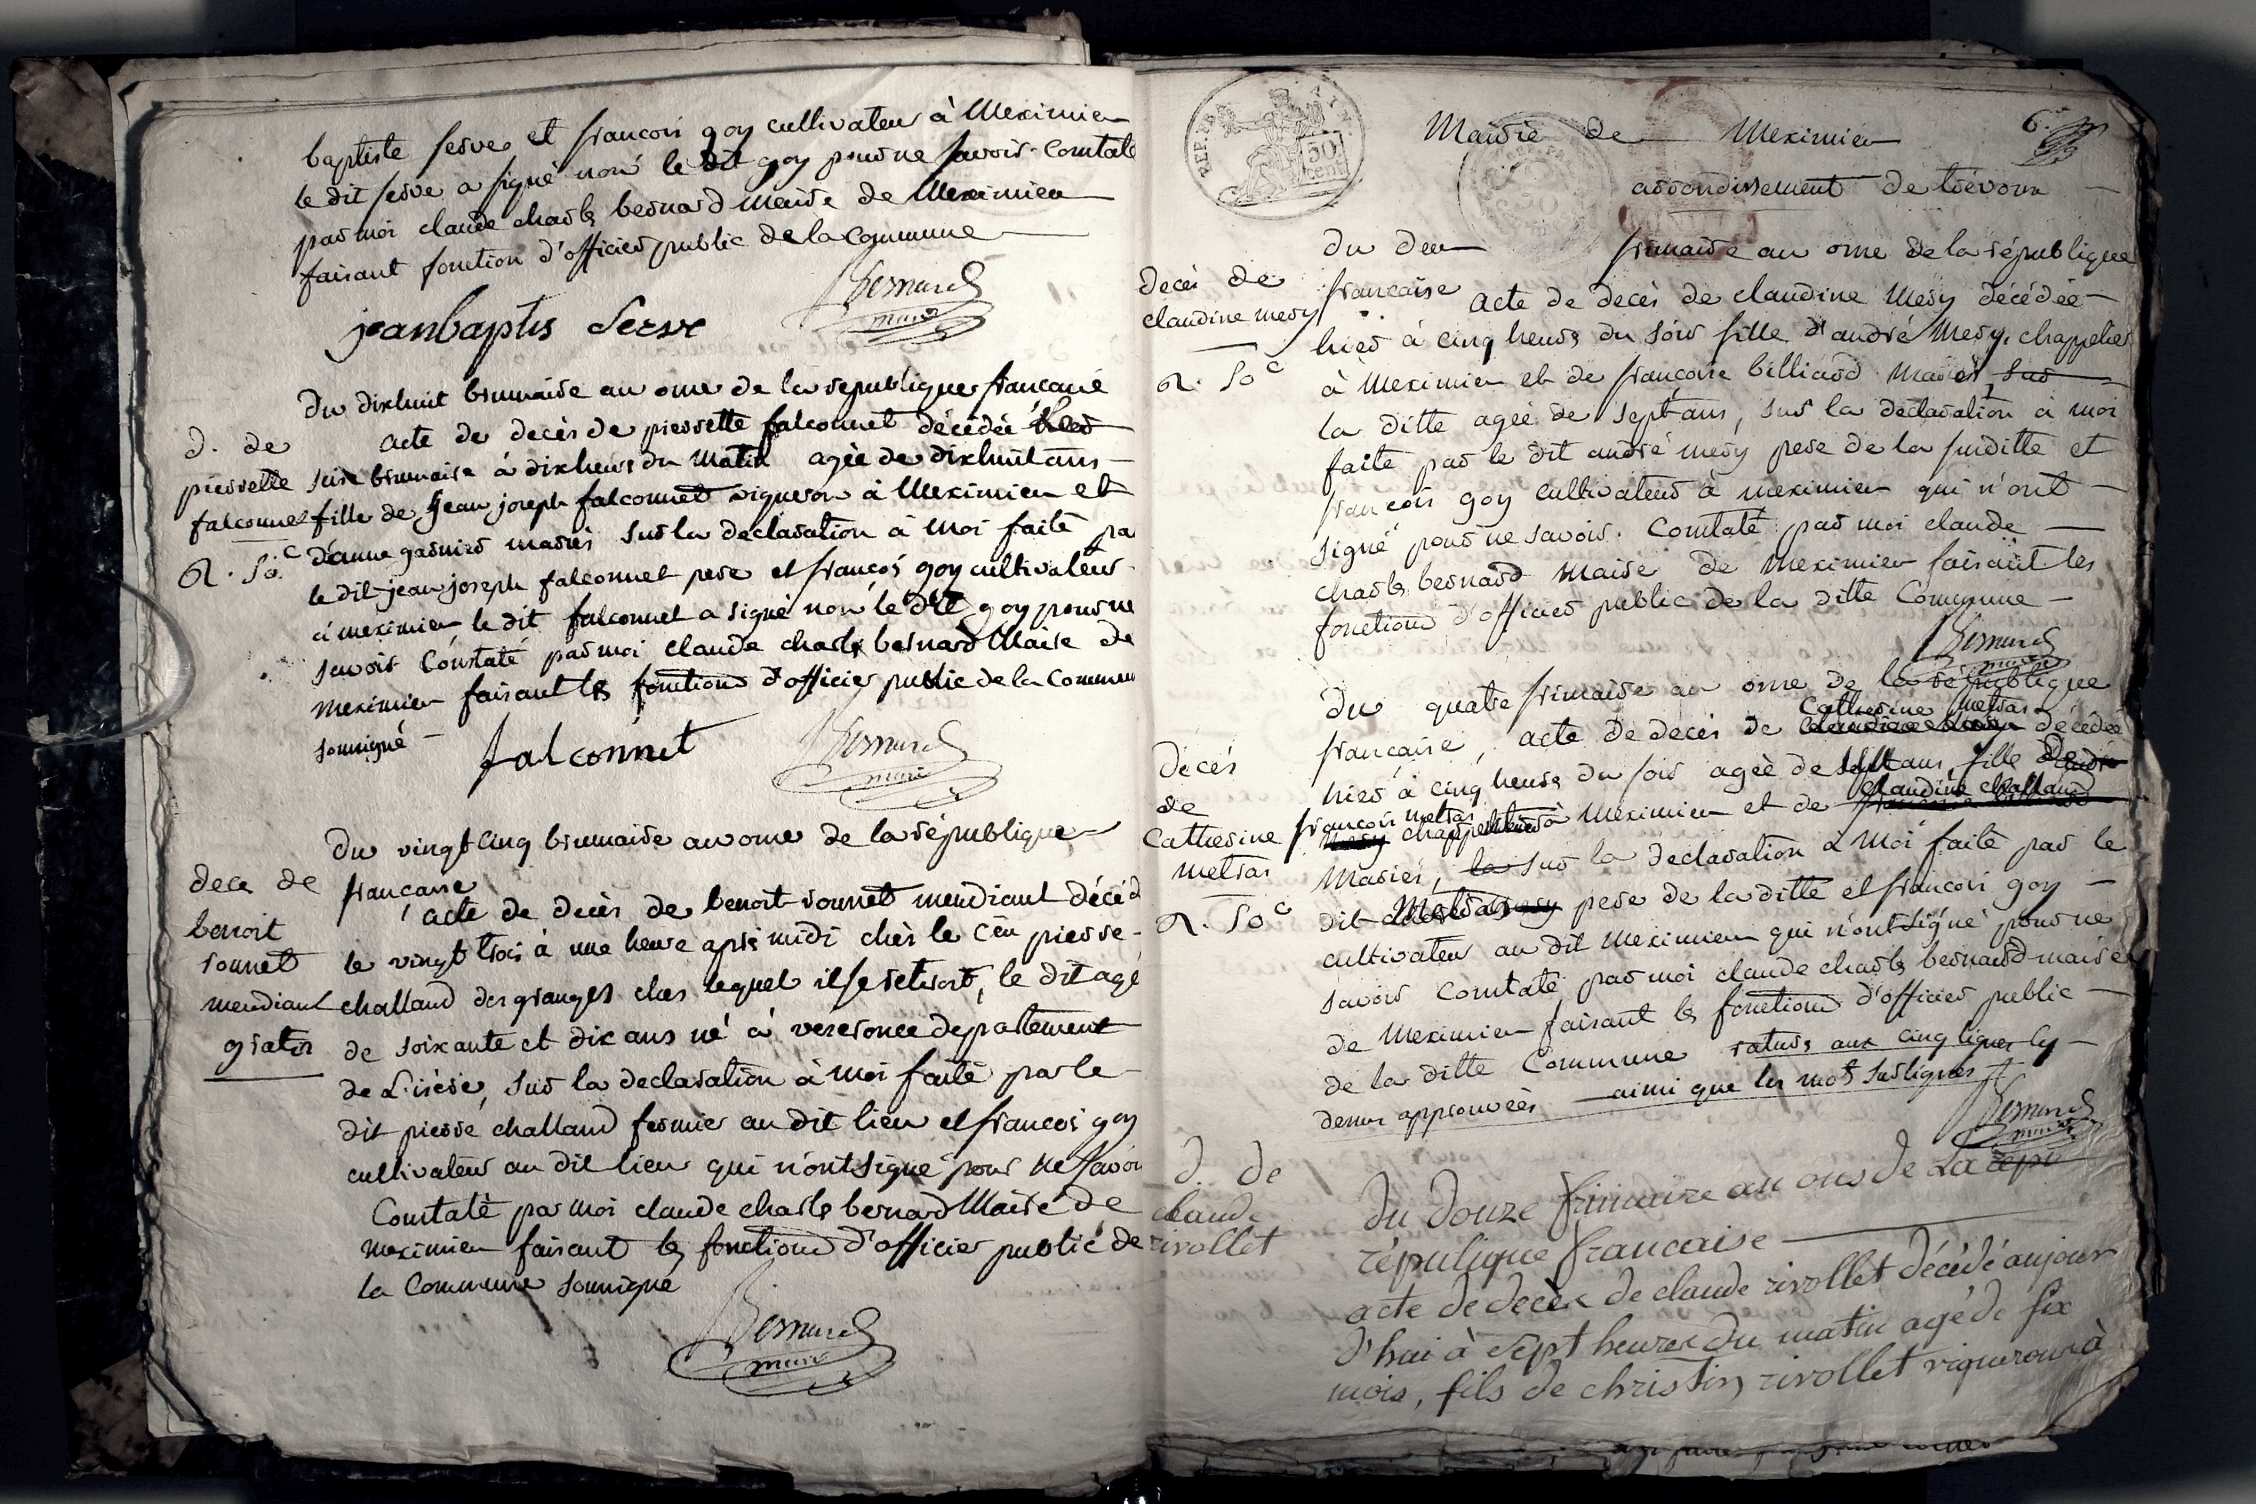 baptiste serve et francois goy cultivateur à Meximier
le dit serve a signé non le dit goy pour ne savoir. Constaté
par moi claude charles bernard Maire de Meximieu
faisant fonction d'officier public de la Commune
Bernard
maire
jeanbaptis Serve
Du dixhuit brumaire an onze de la republique francaise
d. de
pierrette
falconnet
R. 50.c
acte de decès de pierrette falconnet décédée
seize brumaire à dix heures du matin agèe de dixhuit ans
fille de jean joseph falconnet vigneron à Meximieu et
d'anne garnier mariés sur la declaration à moi faite pa
le dit jean joseph falconnet pere et francois goy cultivateur
à meximieu le dit falconnet a signé non le dit goy pour ne
savoir Constaté par moi claude charles bernard Maire de
meximieu faisant les fonctions d'officier public de la Commune
soussigné
falconnet
Bernard
maire
Du vingt cinq brumaire an onze de la république
francaise
dece de
benoit
ronnet
mendiant
gratis
acte de decès de benoit ronnet mendiant décéd
le vingt trois à une heure après midi chès le Cen pierre
challand des granges ches lequel il se retirait, le dit agé
de soixante et dix ans né à veresonce departement
de L'isère, sur la declaration à moi faite par le
dit pierre challand fermier au dit lieu et francois goy
cultivateur au dit lieu qui n'ont signé pour ne savoir
Constaté par moi claude charles bernard Maire de
meximieu faisant les fonctions d'officier public de
la Commune soussigné
Bernard
maire
REP. FRA. AYN.
50
cent
Mairie de Meximieu
6.e
arrondissement de trévoux
du deux frimaire an onze de la république
francaise
Decès de
claudine mery
R. 50c
acte de decès de claudine Mery décédée
hier à cinq heures du soir fille d'andré Mery, chappelier
à Meximieu et de francoise billiard mariés, sur
la ditte agèe de sept ans, sur la déclaration à moi
faite par le dit andré mery pere de la susditte et
francois goy cultivateur à meximieu qui n'ont
signé pour ne savoir. Constaté par moi claude
charles bernard Maire de meximieu faisant les
fonctions d'officier public de la ditte Commune
Bernard
maire
Du quatre frimaire an onze de la republique
Catherine metras
francaise, acte de decès de décédée
Décès
de
Catherine
metras
R. 50c
hier à cinq heures du soir agèe de ans, fille
claudine challand
francois metras
chappelier à Meximieu et de
Mariés, la sur la declaration à moi faite par le
dit Metras pere de la ditte et francois goy
cultivateur au dit Meximieu qui n'ont signé pour ne
savoir Constaté par moi claude charles bernard maire
de Meximieu faisant les fonctions d'officier public
de la ditte Commune ratures aux cinq lignes cy
dessus approuvées ainsi que les mots surlignés
Bernard
maire
d. de
claude
rivollet
du douze frimaire an ons de La repu
république francaise
acte de decès de claude rivollet décédé aujour
d'hui à sept heures du matin agé de six
mois, fils de christin rivollet vigneron à